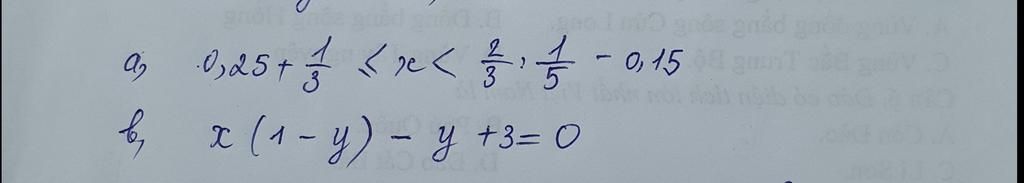 a, 0,25 + 1/3 ≤ x < 2/3 . 1/5 - 0,15
b, x (1 - y) - y + 3 = 0